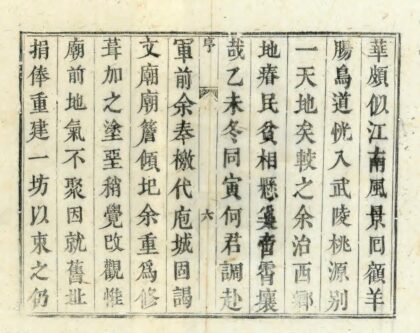 華頗似江南風景回顧羊
腸鳥道恍入武陵桃源別
一天地矣較之余治西鄉
地瘠民貧相懸奚啻霄壤
哉乙未冬同寅何君調赴
序
六
軍前余奉檄代庖城固謁
文廟廟簷傾圮余重為修
葺加之塗堊稍覺改觀惟
廟前地氣不聚因就舊址
捐俸重建一坊以束之仍